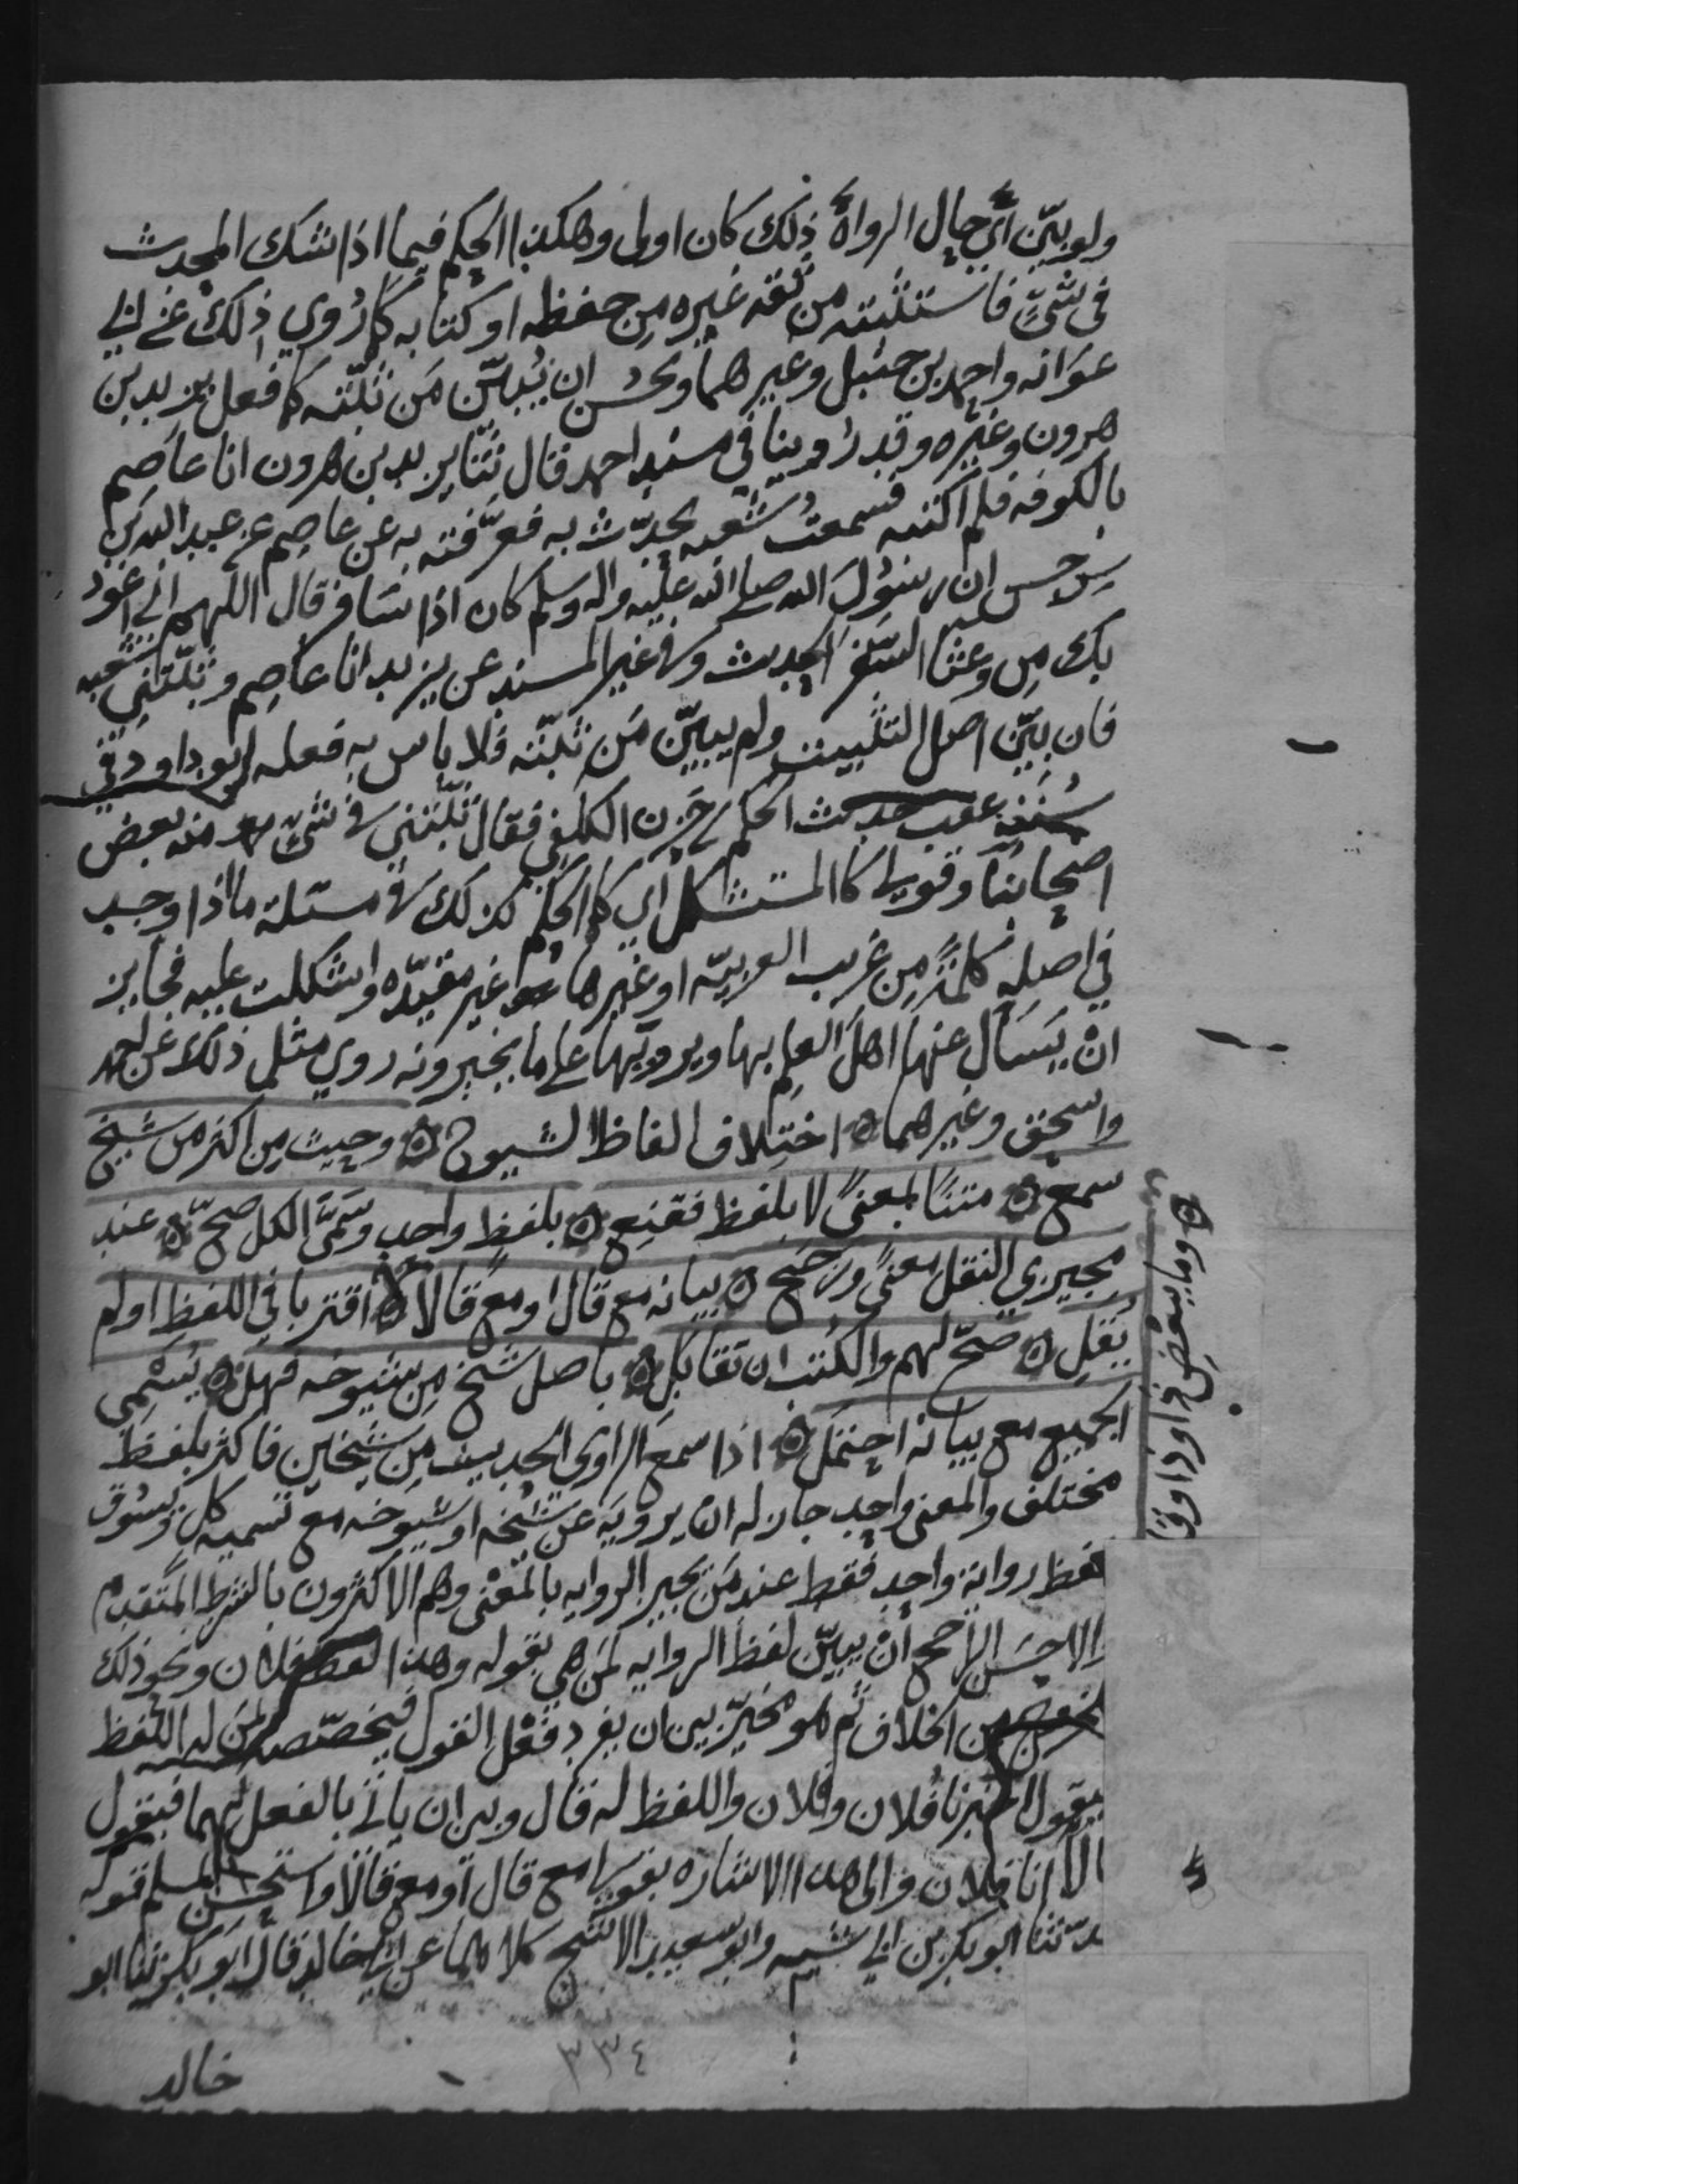 ولو بيّن أي حال الرواة ذلك كان اولى وهكذا الحكم فيما اذا شك المحدث
في شيٍ فاستثبته من ثقه غيره مِن حفظه او كتابه كما رُوي ذلك عن ابي
عَوَانه واحمد بن حنبل وغيرهما ويحسُن ان يُبيّن مَن ثبّته كما فعل يزيد بن
هرون وغيره وقد رُوينا في مسند احمد قال ثنا يزيد بن هرون انا عاصم
بالكوفه فلم اكتبه فسمعتُ شعبه يحدّث به فعرَّفته به عن عاصِم عن عبد الله بن
سرجس ان رسُولَ الله صلى الله عليه واله وسلم كان اذا سَافر قال اللهم اني اعوذ
بك مِن وعثا السَّفر الحديث وفي غير المسند عن يزيد انا عاصِم وثبّتني شعبه
فان بيّن اصل التثبيت ولم يبيّن مَن ثبّته فلا باس به فعله ابو داود في
سُنَنِه عقب حديث الحكم بن حَزن الكلفي فقال ثبّتني في شيٍ منه بعض
اصحابنا وقوله كالمستشكل اي كما الحكم كذلك في مسئلة ما اذا وجد
في اصله كلمةً مِن غريب العربيّه او غيرها غير مقيّده واشكلت عليه فجايز
انْ يَسَال عنها اهل العِلم بها ويرويها على ما يخبرونه روي مثل ذلك عن احمد
واسحق وغيرهما ه اختِلاف الفاظ الشيوخ ه وحيث مِن اكثر من شيخ
سمع ه متنًا بمعنىً لا بلفظ فقنِع ه بلفظٍ واحدٍ وسَمَّى الكل صحّ ه عند
مجيزي النقل معنىً ورجح ه بيانه مع قال او مع قالا ه اقتربا في اللفظ او لم
يُقل ه صَحّ لهم والكُتب ان تقابَل ه باصل شَيخ مِن شيوخه فهل ه يُسَمّي
الجميع مع بيانه احتمل ه اذا سمعَ الراوي الحديث مِن شيخين فاكثر بلفظ
مختلف والمعنى واحد جاز له ان يرويَه عن شيخه او شيوخه مع تسميه كلٍ ويسُوق
لفظ رواية واحد فقط عند مَن يجيز الروايه بالمَعْنى وهم الاكثرون بالشرط المتقدم
والاحسَن الارجح أنْ يبيّن لفظَ الروايه لمَن هي بقوله وهذا لفظ فلان ونحو ذلك
من الخلاف ثم هو مخيّر بين ان يفرد فعْل القول فيخصّصه لمَن له اللفظ
فيقول اخبرنا فلان وفلان واللفظ له قال وبين ان ياتي بالفعل لهما فيقول
قالا انا فلان والى هذا الاشاره بقوله مع قال أو مع قالا واستحسن لمسلم قوله
حدّثنا ابو بكر بن ابي شيبه وابو سعيد الاشج كلاهما عن ابي خالد قال ابو بكر ثنا ابو
خالد
٣٣٤
ه وما ببعض ذا وذا وقا